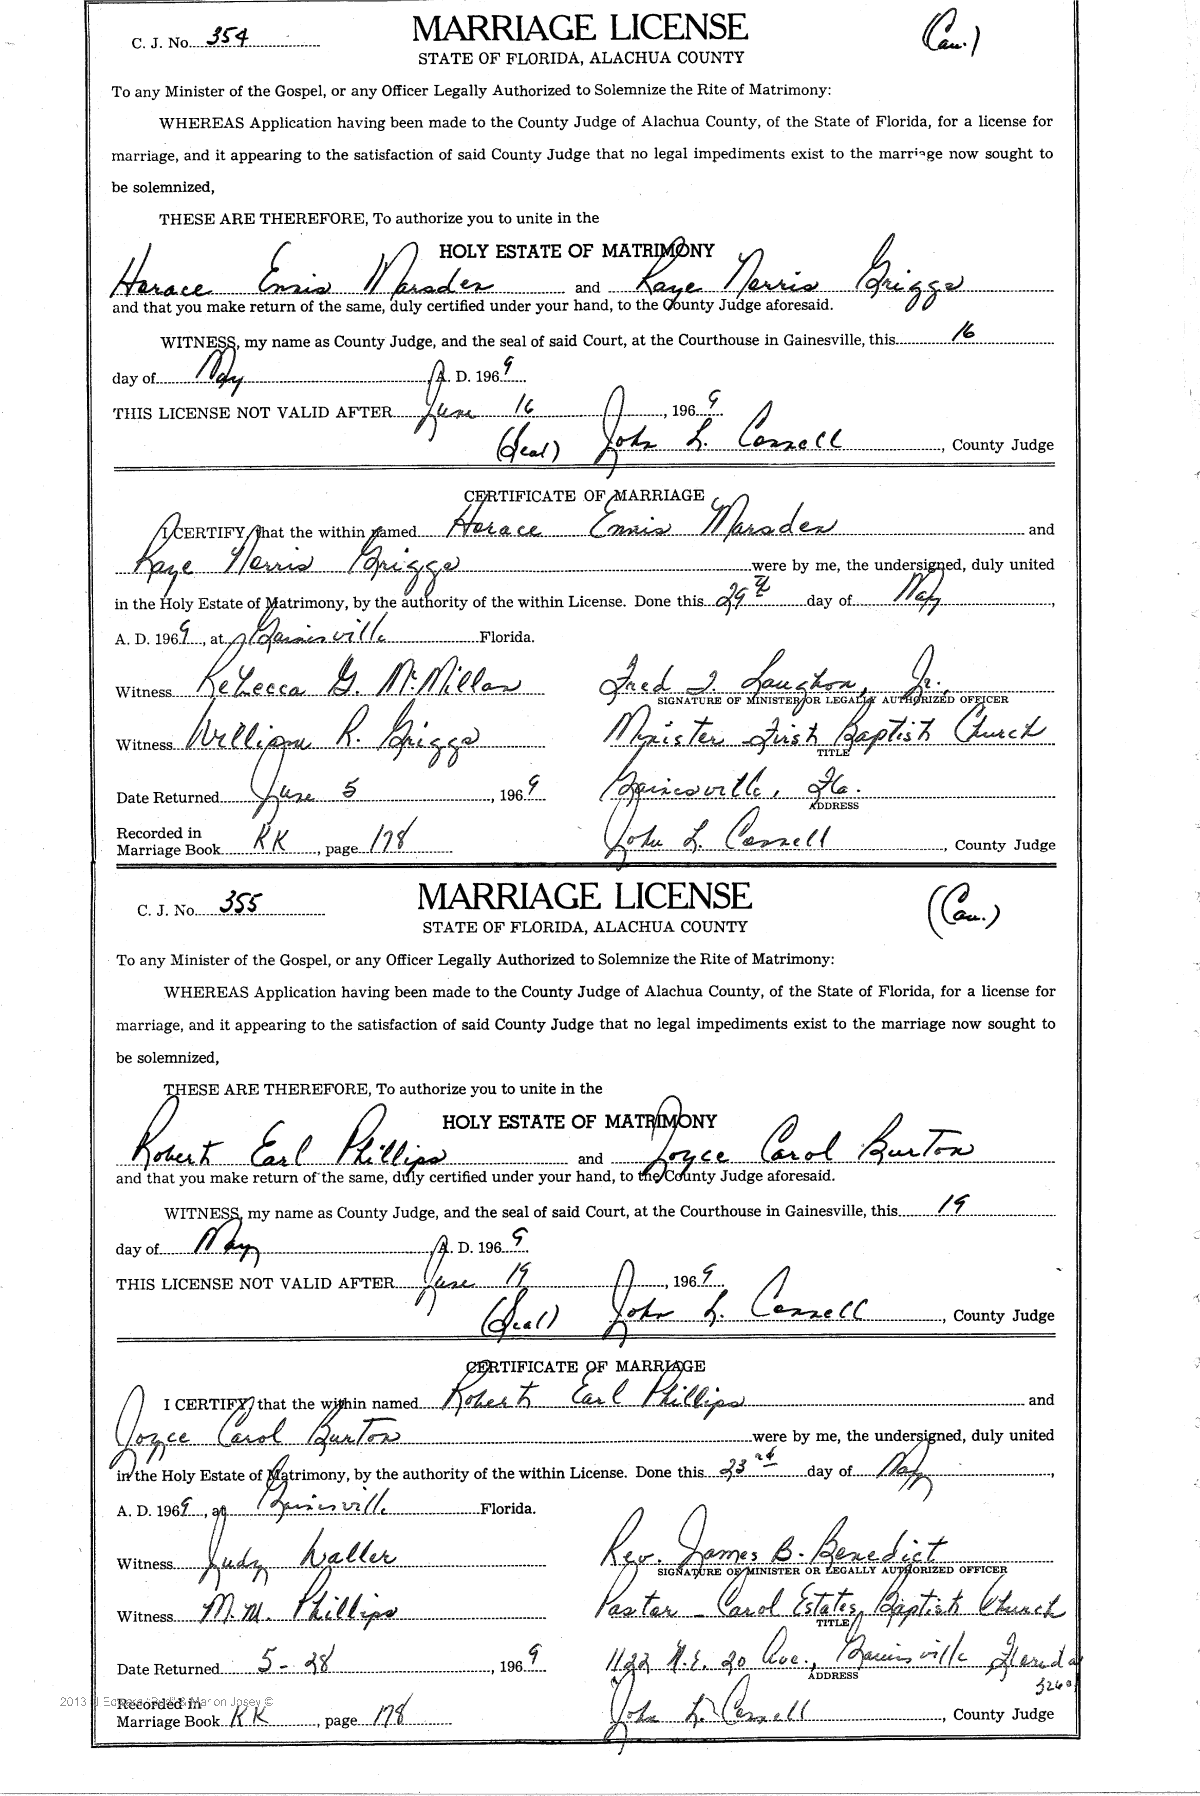 C. J. No. 354
MARRIAGE LICENSE
(Cau.)
STATE OF FLORIDA, ALACHUA COUNTY
To any Minister of the Gospel, or any Officer Legally Authorized to Solemnize the Rite of Matrimony:
WHEREAS Application having been made to the County Judge of Alachua County, of the State of Florida, for a license for
marriage, and it appearing to the satisfaction of said County Judge that no legal impediments exist to the marriage now sought to
be solemnized,
THESE ARE THEREFORE, To authorize you to unite in the
HOLY ESTATE OF MATRIMONY
Horace Ennis Marsden and Kaye Norris Griggs
and that you make return of the same, duly certified under your hand, to the County Judge aforesaid.
WITNESS, my name as County Judge, and the seal of said Court, at the Courthouse in Gainesville, this 16
day of May A. D. 1969
THIS LICENSE NOT VALID AFTER June 16, 1969
(Seal) John L. Connell, County Judge
CERTIFICATE OF MARRIAGE
I CERTIFY that the within named Horace Ennis Marsden and
Kaye Norris Griggs were by me, the undersigned, duly united
in the Holy Estate of Matrimony, by the authority of the within License. Done this 29th day of May,
A. D. 1969, at Gainesville Florida.
Witness Rebecca G. McMillan Fred T. Laughon, Jr.
SIGNATURE OF MINISTER OR LEGALLY AUTHORIZED OFFICER
Witness William R. Griggs Minister First Baptist Church
TITLE
Date Returned June 5, 1969 Gainesville, Fla.
ADDRESS
Recorded in
Marriage Book KK, page 178 John L. Connell, County Judge
C. J. No. 355
MARRIAGE LICENSE
(Cau.)
STATE OF FLORIDA, ALACHUA COUNTY
To any Minister of the Gospel, or any Officer Legally Authorized to Solemnize the Rite of Matrimony:
WHEREAS Application having been made to the County Judge of Alachua County, of the State of Florida, for a license for
marriage, and it appearing to the satisfaction of said County Judge that no legal impediments exist to the marriage now sought to
be solemnized,
THESE ARE THEREFORE, To authorize you to unite in the
HOLY ESTATE OF MATRIMONY
Robert Earl Phillips and Joyce Carol Burton
and that you make return of the same, duly certified under your hand, to the County Judge aforesaid.
WITNESS, my name as County Judge, and the seal of said Court, at the Courthouse in Gainesville, this 19
day of May A. D. 1969
THIS LICENSE NOT VALID AFTER June 19, 1969
(Seal) John L. Connell, County Judge
CERTIFICATE OF MARRIAGE
I CERTIFY that the within named Robert Earl Phillips and
Joyce Carol Burton were by me, the undersigned, duly united
in the Holy Estate of Matrimony, by the authority of the within License. Done this 23rd day of May,
A. D. 1969, at Gainesville Florida.
Witness Judy Waller Rev. James B. Benedict
SIGNATURE OF MINISTER OR LEGALLY AUTHORIZED OFFICER
Witness M. M. Phillips Pastor - Carol Estates Baptist Church
TITLE
Date Returned 5-28, 1969 1122 N.E. 20 Ave., Gainesville Florida
ADDRESS
Recorded in
Marriage Book KK, page 178 John L. Connell, County Judge